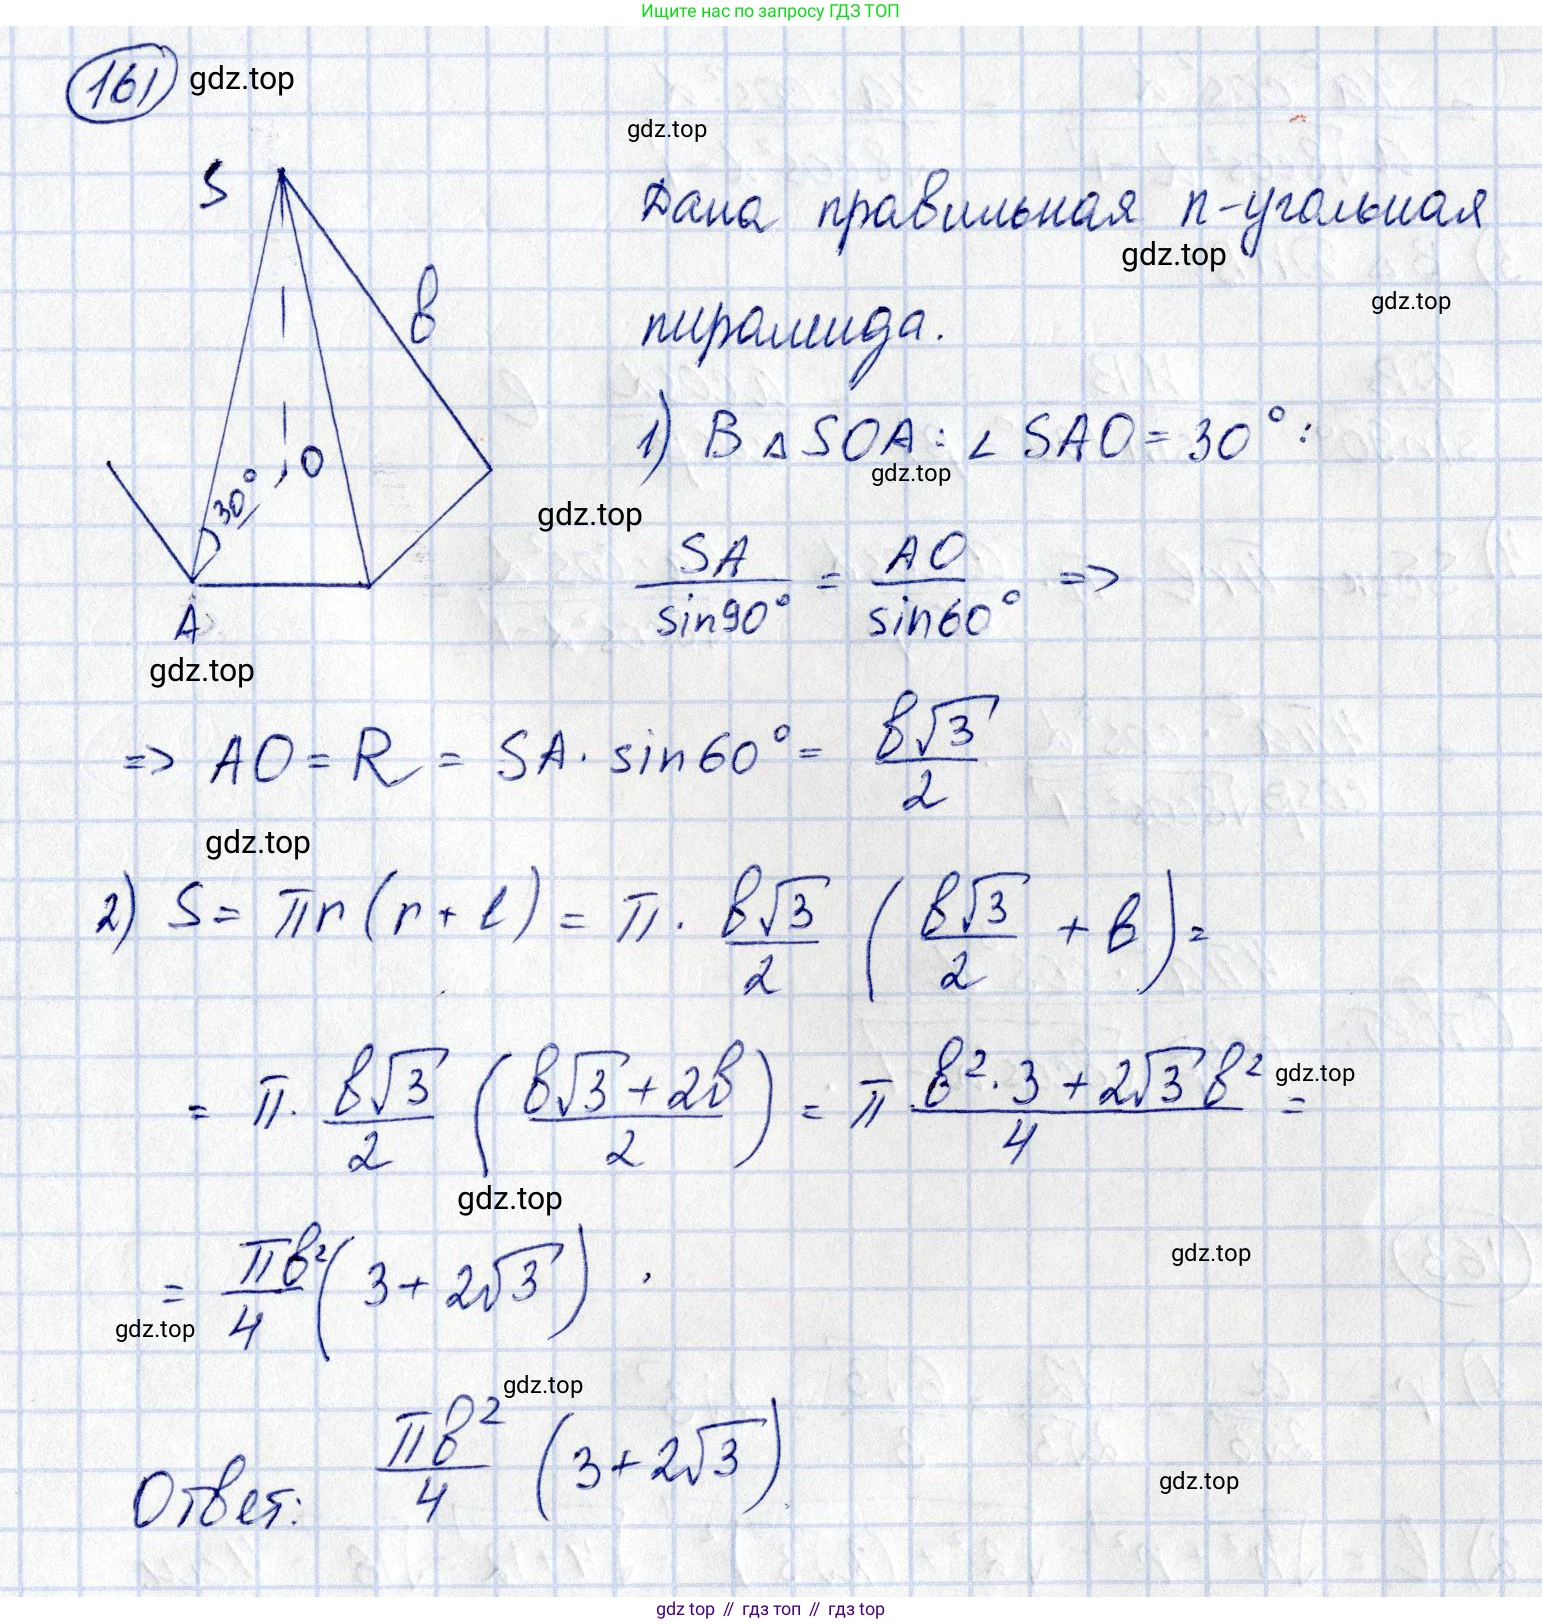 Ищите нас по запросу ГДЗ ТОП
161 gdz.top
gdz.top
S
Дана правильная n-угольная
gdz.top
gdz.top
b
пирамида.
1) В △ SOA: ∠ SAO = 30°:
gdz.top
O
30°
gdz.top
SA/sin90° = AO/sin60° =>
A
gdz.top
=> AO = R = SA · sin60° = b√3/2
gdz.top
2) S = πr(r + l) = π · b√3/2 (b√3/2 + b) =
= π · b√3/2 ((b√3 + 2b)/2) = π (b² · 3 + 2√3 b²)/4 =
gdz.top
gdz.top
= πb²/4 (3 + 2√3).
gdz.top
gdz.top
gdz.top
Ответ: πb²/4 (3 + 2√3)
gdz.top
gdz top // гдз топ // гдз top